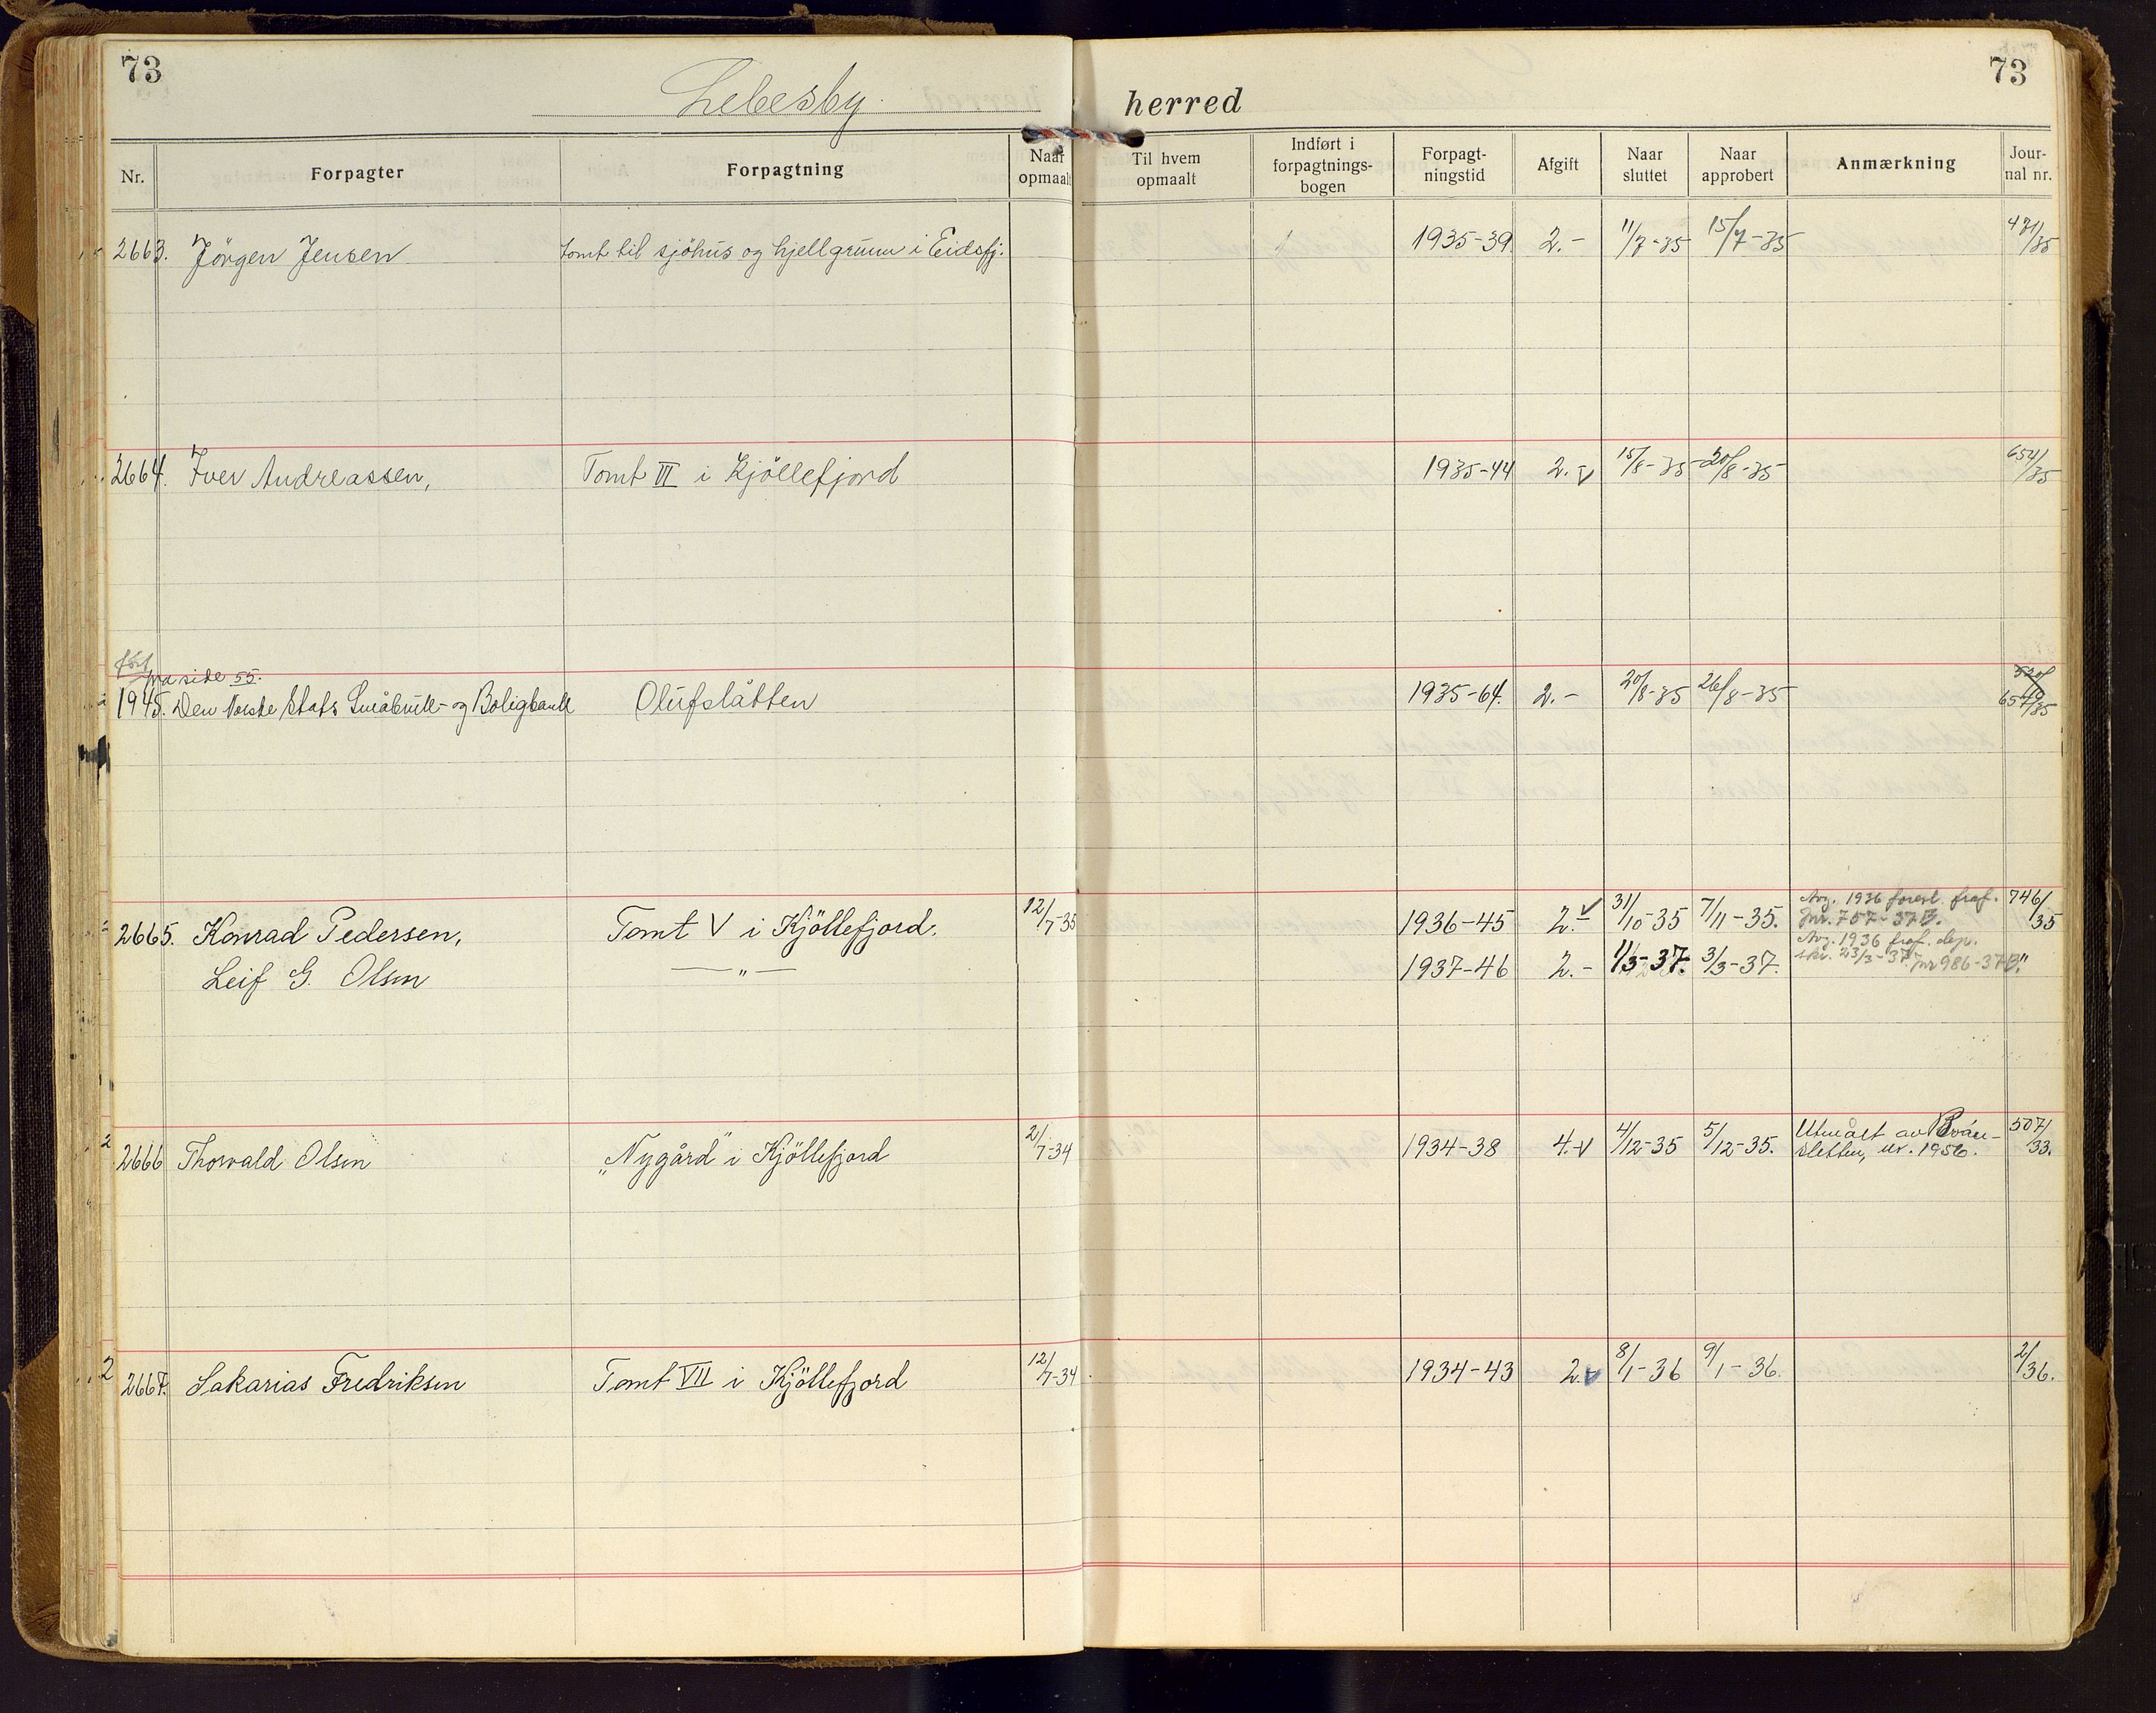 73
Lebesby herred
73
Nr. Forpagter Forpagtning Naar opmaalt Til hvem opmaalt Indført i forpagtnings-bogen Forpagt-ningstid Afgift Naar sluttet Naar approbert Anmærkning Jour-nal nr.
2663. Jörgen Jensen tomt til sjöhus og hjellgrunn i Eidsfj. 1935-39 2.- 11/7-35 15/7-35 471/35
2664. Iver Andreassen, Tomt III i Kjöllefjord 1935-44 2.- 15/8-35 20/8-35 654/35
fört
fra side 55.
1945. Den Norske Stats Småbruk- og Boligbank Olufslåtten 1935-64. 2.- 20/8-35 26/8-35 657/35
2665. Konrad Pedersen, Tomt V i Kjöllefjord. 12/7-35 1936-45 2.- 31/10-35 7/11-35. Avg. 1936 forest. fraf. Jnr. 757-37B. 746/35
Leif G. Olsen —„— 1937-46 2.- 1/3-37. 3/3-37. Avg. 1936 fraf. dep. skr. 23/3-37. Jnr 986-37B. "
2666 Thorvald Olsen „Nygård" i Kjöllefjord 2/7-34 1934-38 4.- 4/12-35 5/12-35. Utmålt av sletten, nr. 1956. 507/33.
2667. Sakarias Fredriksen Tomt VII i Kjöllefjord 12/7-34 1934-43 2. 8/1-36 9/1-36. 2/36.